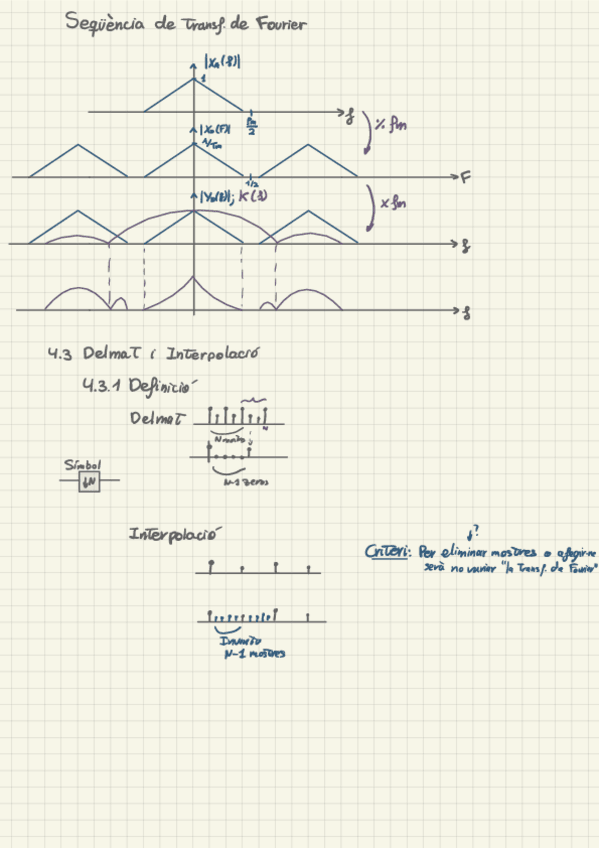 Seqüència de Transf. de Fourier
|Xa(f)|
1
f
fm/2
% fm
|Xs(F)|
1/Tm
1/2
F
|Ys(f)|; K(f)
x fm
f
f
4.3 Delmat i Interpolació
4.3.1 Definició
Delmat
N
Símbol
↓N
N-1 zeros
Interpolació
↓?
Criteri: Per eliminar mostres o afegir-ne
serà no variar "la Transf. de Fourier"
Invento
N-1 mostres